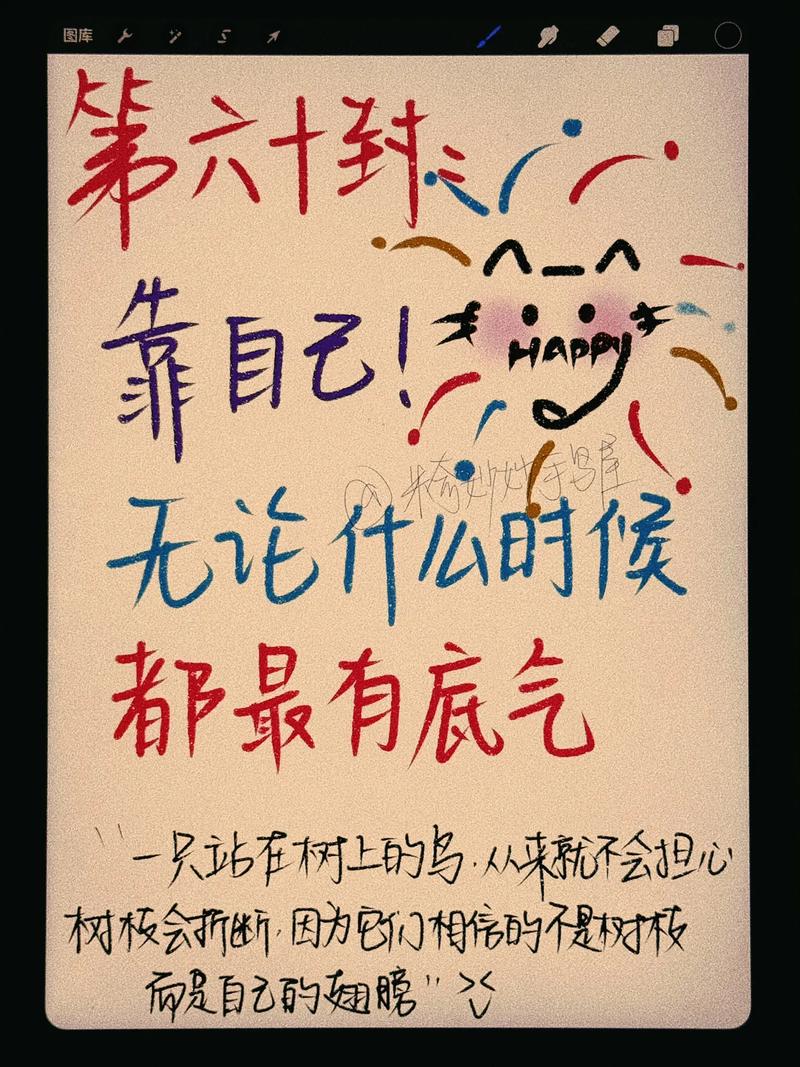 图库
第六十封:
HAPPY
靠自己!
@米奇妙妙手写屋
无论什么时候
都最有底气
“一只站在树上的鸟.从来就不会担心
树枝会折断.因为它们相信的不是树枝
而是自己的翅膀”